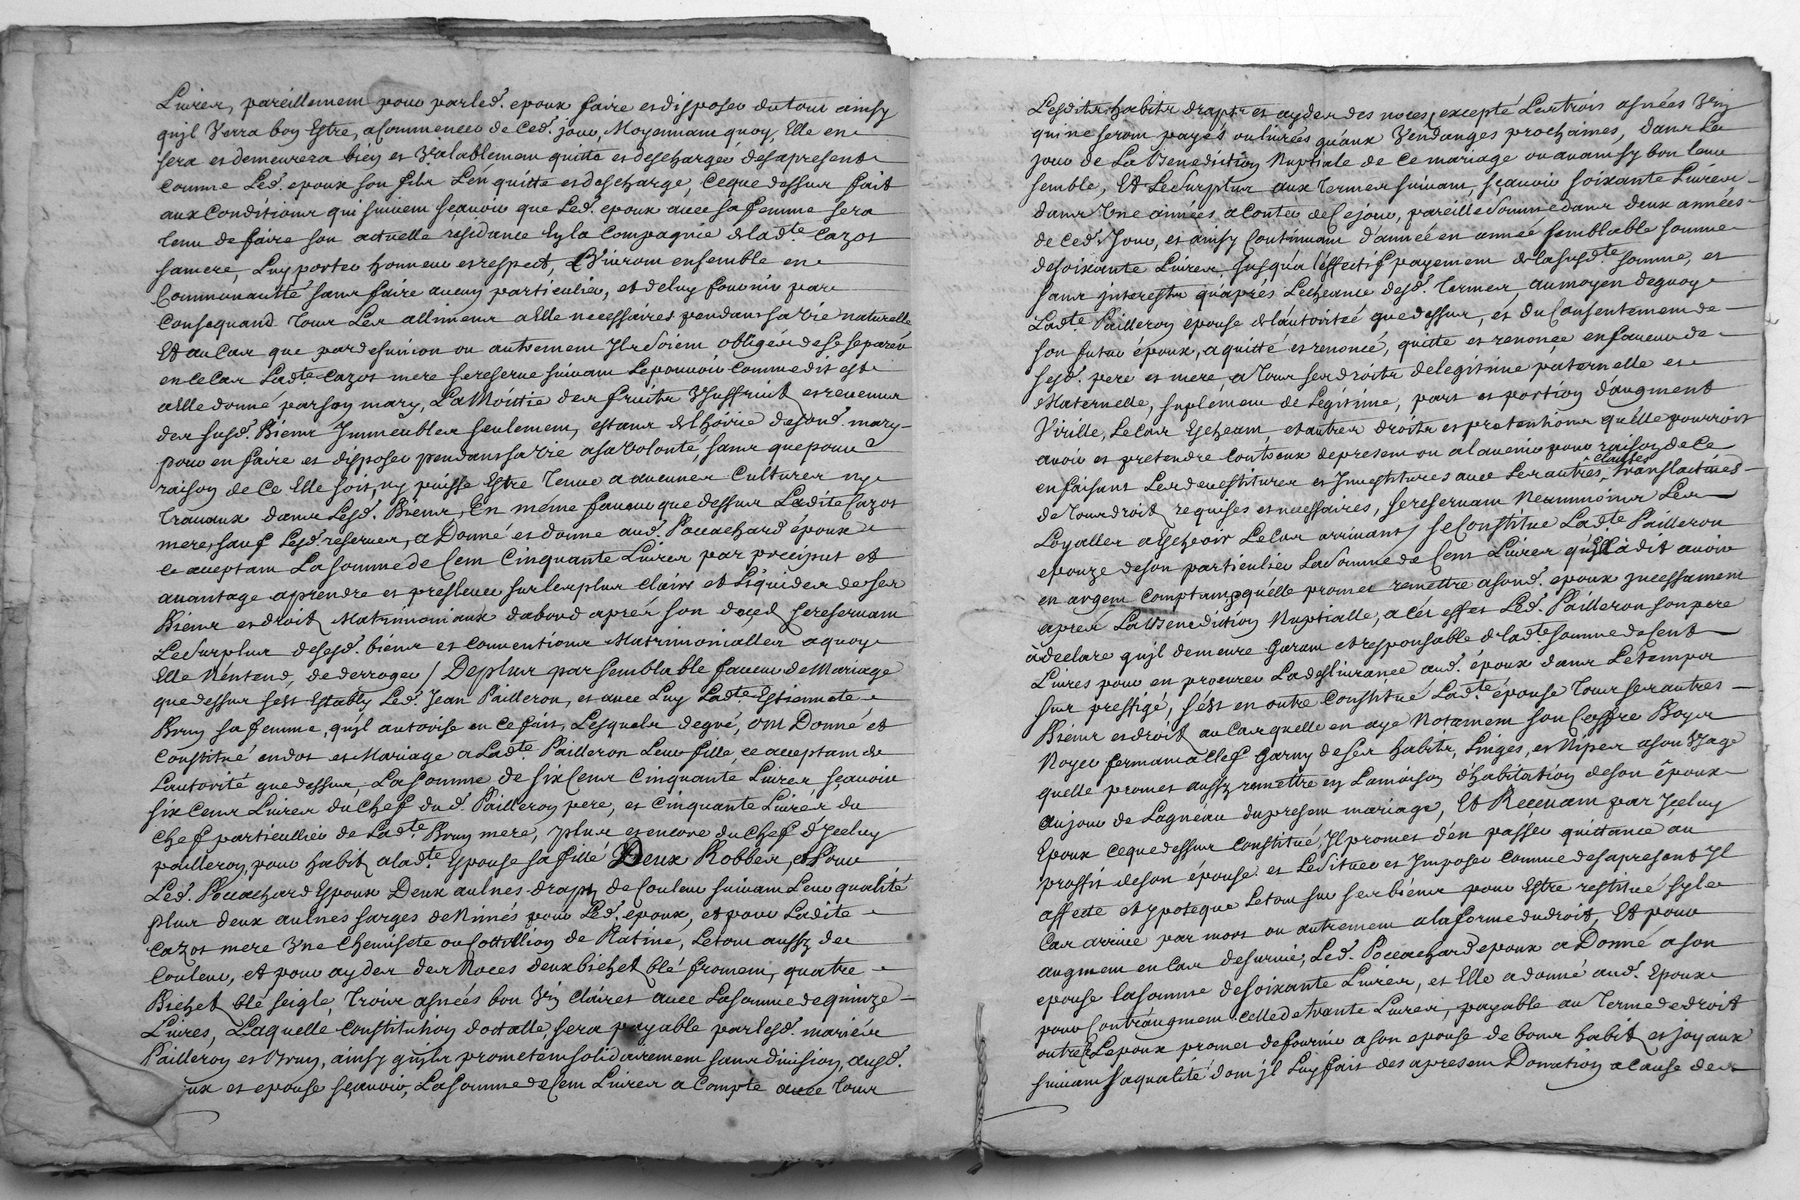 Livres, pareillement pour par led. epoux faire et disposer du tout ainsy
quyl verra bon Estre, a commencer de ced. jour, Moyennant quoy, Elle en
sera et demeurera bien et valablement quitte et deschargée désapresent
comme Led. epoux son fils L'en quitte et descharge, ceque dessus fait
aux Conditions qui suivent sçavoir que Led. epoux avec sa femme sera
tenu de faire son actuelle residance En la Compagnie de lad.te Cazot
sa mere, Luy porter honneur et respect, Et vivront ensemble en
Communauté sans faire aucun particulier, et de luy fournir par
Consequand tous Les allimens a Elle necessaires pendant sa vie naturelle
Et au Cas que par desunion ou autrement Ils soient obligés de se separer
en ce Cas Lad.te Cazot mere se reserve suivant Le pouvoir comme dit est
a Elle donné par son mary, La Moittié des fruits Usuffruit et revenus
des susd. Biens Immeubles seulement, estans de l'hoirie desond. mary
pour en faire et disposer pendant sa vie a sa volonté, sans que pour
raison de ce Elle soit, ny puisse Estre Tenue a aucunes Cultures ny
travaux dans Lesd. Biens, En même faveur que dessus Ladite Cazot
mere, sauf Lesd. reserves, a Donné et donne aud. Pouachard époux
ce acceptant La somme de Cent Cinquante Livres par preciput et
avantage aprendre et preslever sur les plus clairs et Liquides de ses
Biens et droits Matrimoniaux d'abord apres son deced se reservant
Le surplus de sesd. biens et conventions Matrimonialles a quoy
Elle N'entend, de derroger / Deplus par semblable faveur de Mariage
que dessus s'est Estably Led. Jean Pailleron, et avec Luy Lad.te Estiennete
Brun sa femme, quyl autorise en ce fait, Lesquels de gré, ont Donné et
Constitué en dot et Mariage a Lad.te Pailleron Leur fille, ce acceptant de
L'autorité que dessus, La somme de six Cens Cinquante Livres, sçavoir
six Cens Livres du Chef dud. Pailleron pere, et Cinquante Livres du
Chef particullier de Lad.te Brun mere, plus et encore du Chef d'Iceluy
pailleron, pour habit a lad.te Epouse sa fille Deux Robbes, et pour
Led. Pouachard Epoux Deux aulnes draps de Couleur suivant Leur qualité
plus deux aulnes sarges de Nimes pour Led. epoux, et pour Ladite
Cazot mere Une Chemisete ou Cottillion de Ratine, Le tout aussy de
Couleur, et pour ayder des Noces deux bichet blé froment, quatre
Bichet blé seigle, trois asnées bon vin Clairet avec La somme de quinze
Livres, Laquelle Constitution dottalle sera payable par lesd. mariés
Pailleron et Brun, ainsy quyls promettent solidairement sans division, ausd.
ux et epouse sçavoir, La somme de Cent Livres a Compte avec tous
Lesdits habits draps et ayder des noces, excepté Les trois asnées Vin
qui ne seront payés ou livrées qu'aux Vendanges prochaines, dans Le
jour de La Benediction Nuptiale de ce mariage ou avant sy bon leur
semble, Et Le surplus aux termes suivant, sçavoir soixante Livres
dans Une années a Conter de Ce jour, pareille somme dans deux années
de ced. Jour, et ainsy Continuant d'année en année semblable somme
de soixante Livres, jusqu'a l'effectif payement de la susd.te somme, et
sans interests qu'aprés L'echeance desd. termes, au moyen de quoy
Lad.te Pailleron epouse de l'autoritée que dessus, et du Consentement de
son futur époux, a quitté et renoncé, quitte et renonce en faveur de
sesd. pere et mere a tous ses droits de legitime paternelle et
Maternelle, suplement de Legitime, part et portion d'augment
Virille, Le Cas Escheant, et autres droits et pretentions qu'elle pourroit
avoir et pretendre Contr'eux de present ou a l'avenir pour raison de Ce
en faisant Les devestitures et Investitures avec Les autres clauses translatives
de tous droit requises et necessaires, se reservant Neanmoins Les
Loyalles Escheoir Le Cas arrivant, se Constitue Lad.te Pailleron
epouze de son particulier La somme de Cent Livres qu'Elle à dit avoir
en argent Comptant, qu'élle promet remettre a sond. epoux incessament
aprés La Benediction Nuptialle, a cet effet Led. Pailleron son pere
à declare quyl demeure Garant et responsable de lad.te somme de Cent
Livres pour en procurer La deslivrance aud. époux dans Le temps
sus prefigé, s'est en outre Constitué Lad.te épouse tous ses autres
Biens et droits au Cas quelle en aye Notament son Coffre Boyer
Noyer fermant à Clef Garny de ses habits, Linges, et Nipes a son Usage
quelle promet aussy remettre en La maison d'habitation de son époux
au jour de Lagneau du present mariage, Et Recevant par Icelluy
Epoux ce que dessus Constitué, Il promet d'en passer quittance au
proffit de son épouse et Le situer et Imposer comme des a present Il
affecte et ypoteque Le tout sur ses biens pour Estre restitué sy le
Cas arrive par mort ou autrement a la forme du droit, Et pour
augment en Cas de survie, Led. Pouachard epoux a Donné a son
epouse la somme de soixante Livres, et Elle a donné aud. Epoux
pour Contraugment celle de trante Livres, payable au Terme de droit
outre L'epoux promet de fournir a son epouse de bons habits et joyaux
suivant sa qualité dont il Luy fait des apresent Donation a cause des